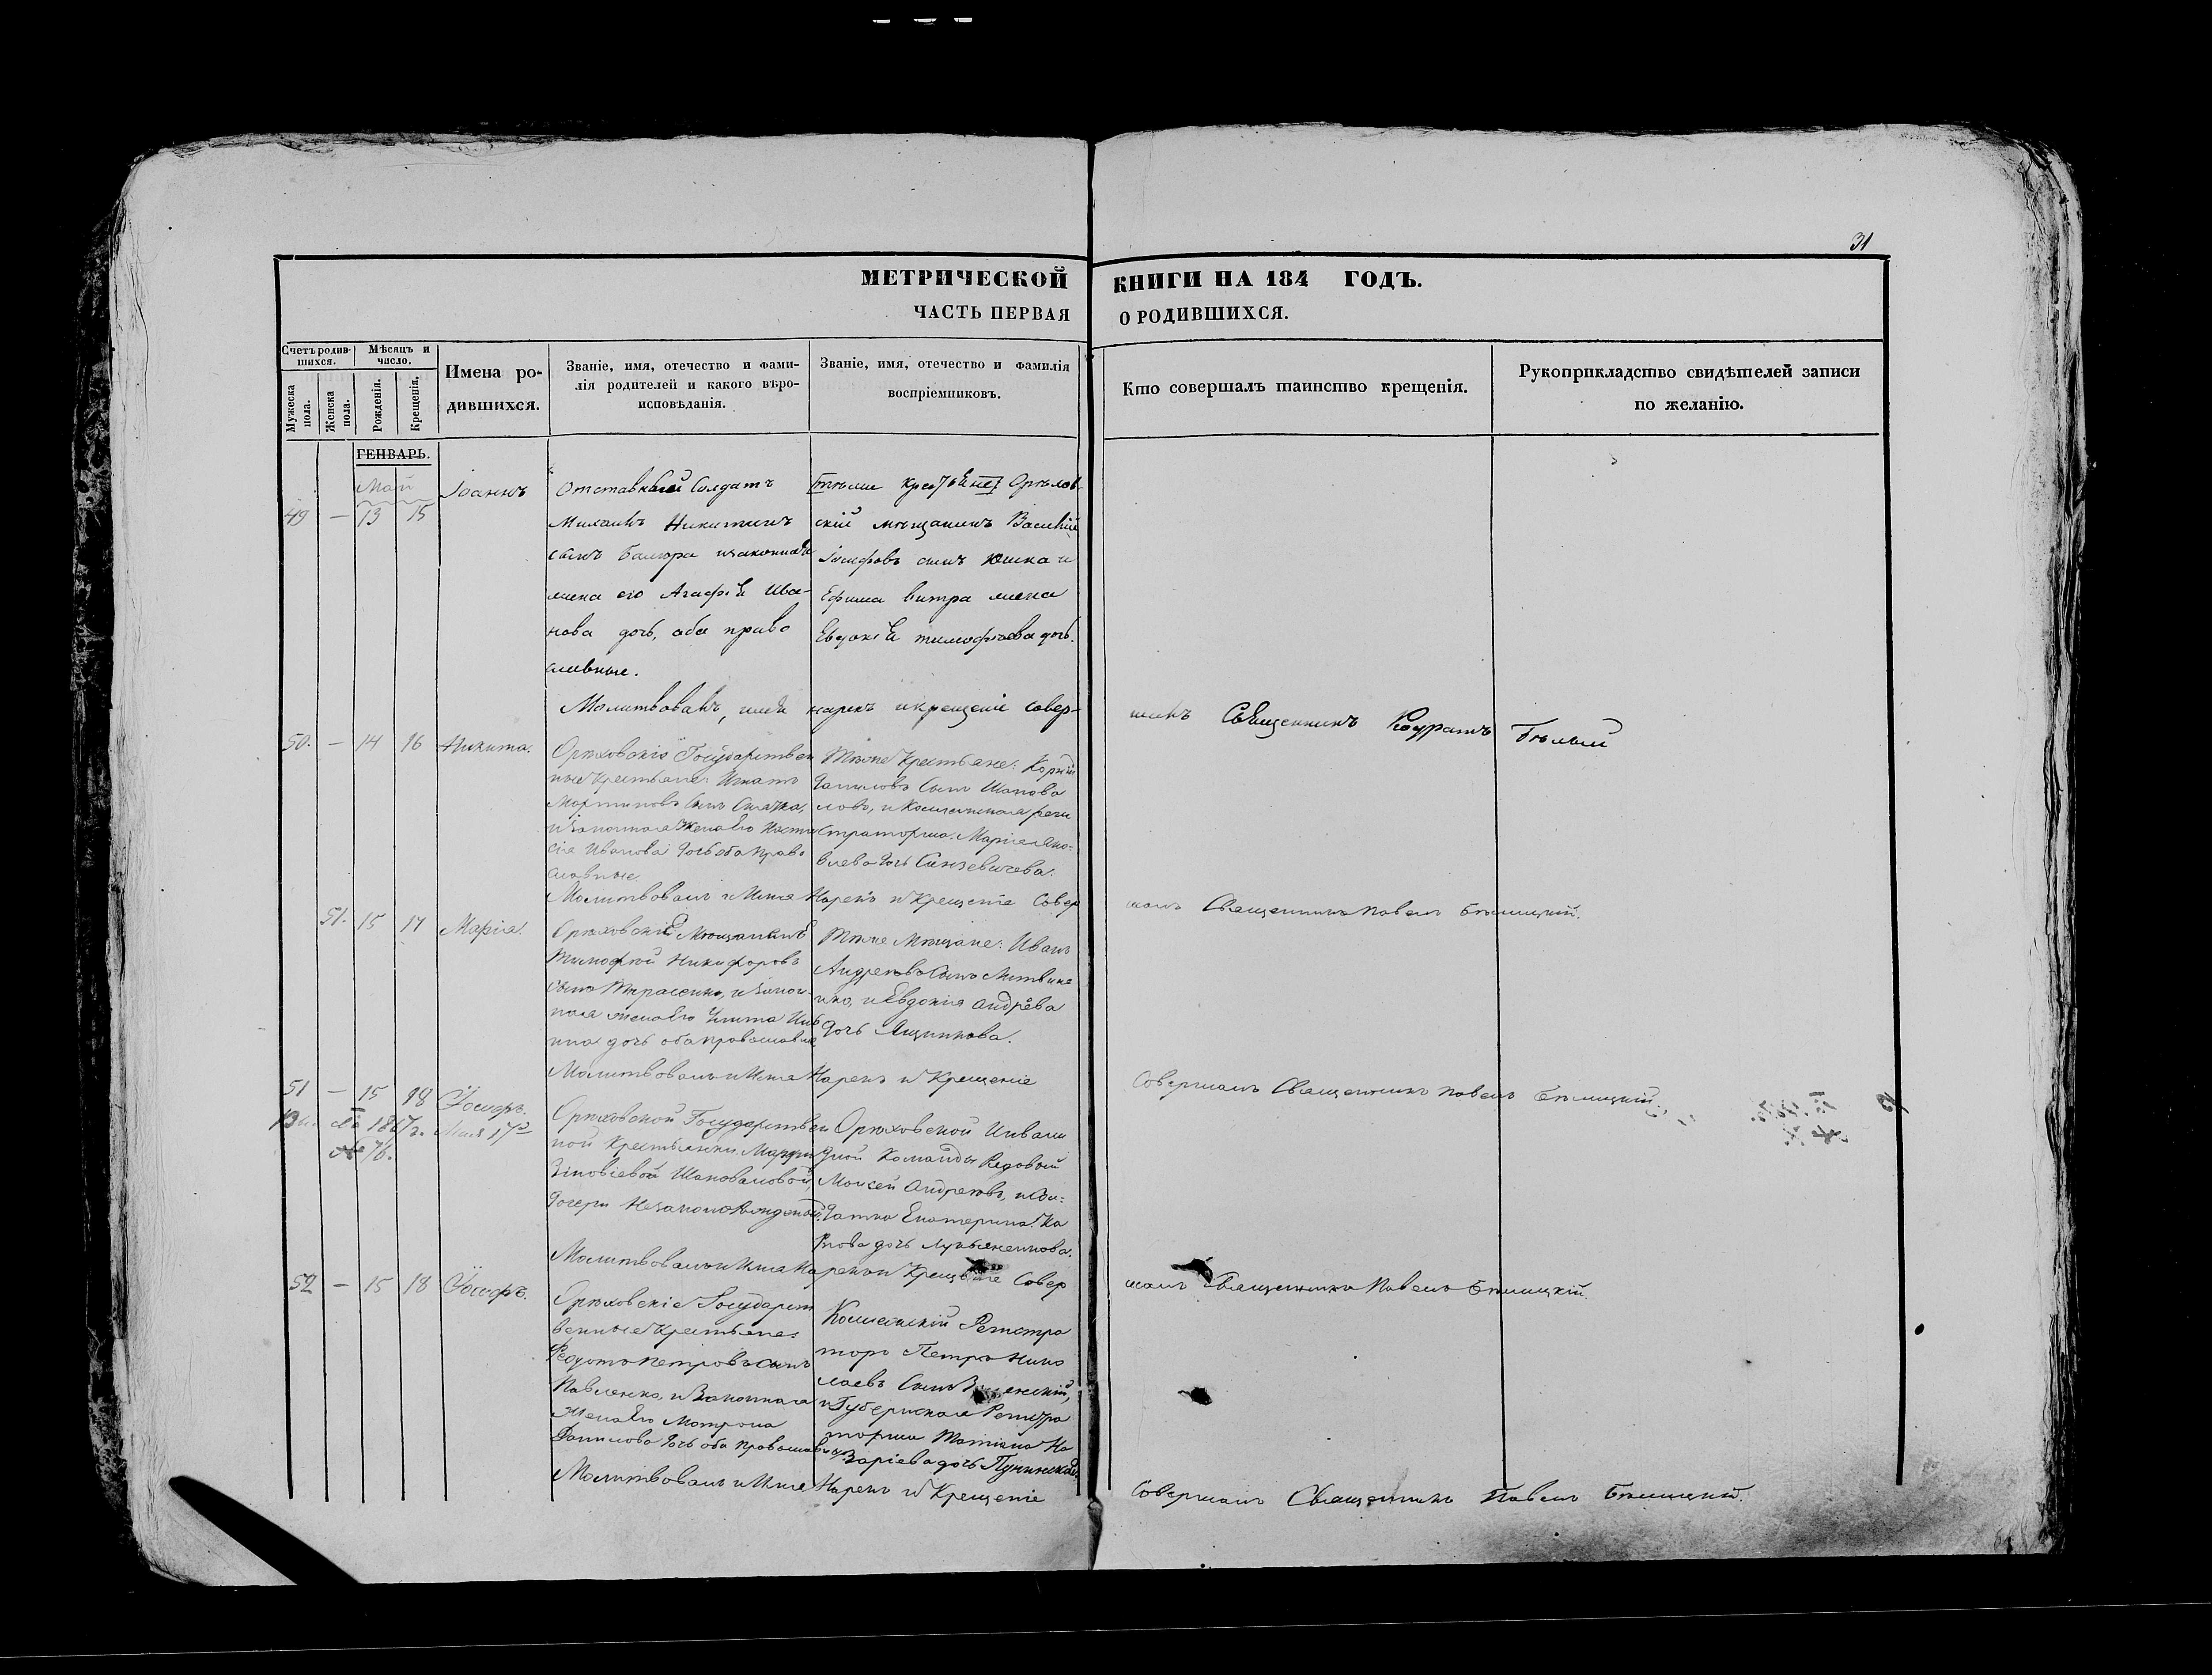 31
МЕТРИЧЕСКОЙ КНИГИ НА 184 ГОДЪ.
ЧАСТЬ ПЕРВАЯ О РОДИВШИХСЯ.
Счетъ родив-
шихся.
Мѣсяцъ и
число.
Мужеска
пола.
Женска
пола.
Рожденія.
Крещенія.
Имена ро-
дившихся.
Званіе, имя, отечество и фами-
лія родителей и какого вѣро-
исповѣданія.
Званіе, имя, отечество и фамилія
воспріемниковъ.
Кто совершалъ таинство крещенія.
Рукоприкладство свидѣтелей записи
по желанію.
ГЕНВАРЬ.
Май
49 — 13 15
Іоаннъ
Отставный Солдатъ
Михаилъ Никитинъ
сынъ
жена его Агафія Ива-
нова дочь, оба право
славные.
Орѣхов-
скій мѣщанинъ Василій
Іосифовъ сынъ Юшка и
Ефима жена
Евдокія тимофѣева дочь.
Молитвовалъ, имя нарекъ и крещеніе совер-
шилъ Священникъ Кодратъ Бѣлый
50. — 14 16
Никита.
Орѣховскіе Государствен
ные Крестьяне: Игнатъ
Мартиновъ Сынъ
и Законная Жена Его Наста
сія Иванова дочь оба право
славные.
Тѣже Крестьяне: Корній
Даниловъ Сынъ Шапова
ловъ, и Колежская реги
страторша Марія Яко-
влева дочь
Молитвовалъ и Имя Нарекъ и Крещеніе Совер
шалъ Священникъ Павелъ Бѣлицкій.
51. 15 17
Марія.
Орѣховскіе Мѣщане
Тимофей Никифоровъ
сынъ Тарасенко, и закон-
ная жена Его
дочь оба православные
Тѣже Мѣщане: Иванъ
Андреевъ Сынъ Литвине
нко, и Евдокія Андрѣева
дочь
Молитвовалъ и Имя Нарекъ и Крещеніе
Совершалъ Священникъ Павелъ Бѣлицкій.
51 — 15 18
Іосифъ.
Мая 17
№ 76.
Орѣховской Государствен
ной Крестьянки Марфи
Зіновіевой Шаповаловой,
дочери Незаконорожденой
Орѣховской Инвали
дной Команды Рядовый
Моисей Андреевъ, и Сол-
датка Екатерина
дочь
Молитвовалъ и Имя Нарекъ и Крещеніе Совер
шалъ Священникъ Павелъ Бѣлицкій.
52 — 15 18
Іосифъ.
Орѣховскіе Государст
венные Крестьяне:
Федотъ Петровъ сынъ
Павленко, и Законная
Жена Его Мотрона
Данилова дочь оба православные
Колежскій Регистра
торъ Петръ Нико
лаевъ Сынъ
и Губернская Регистра
торша Татіана На
заріева дочь
Молитвовалъ и Имя Нарекъ и Крещеніе
Совершалъ Священникъ Павелъ Бѣлицкій.